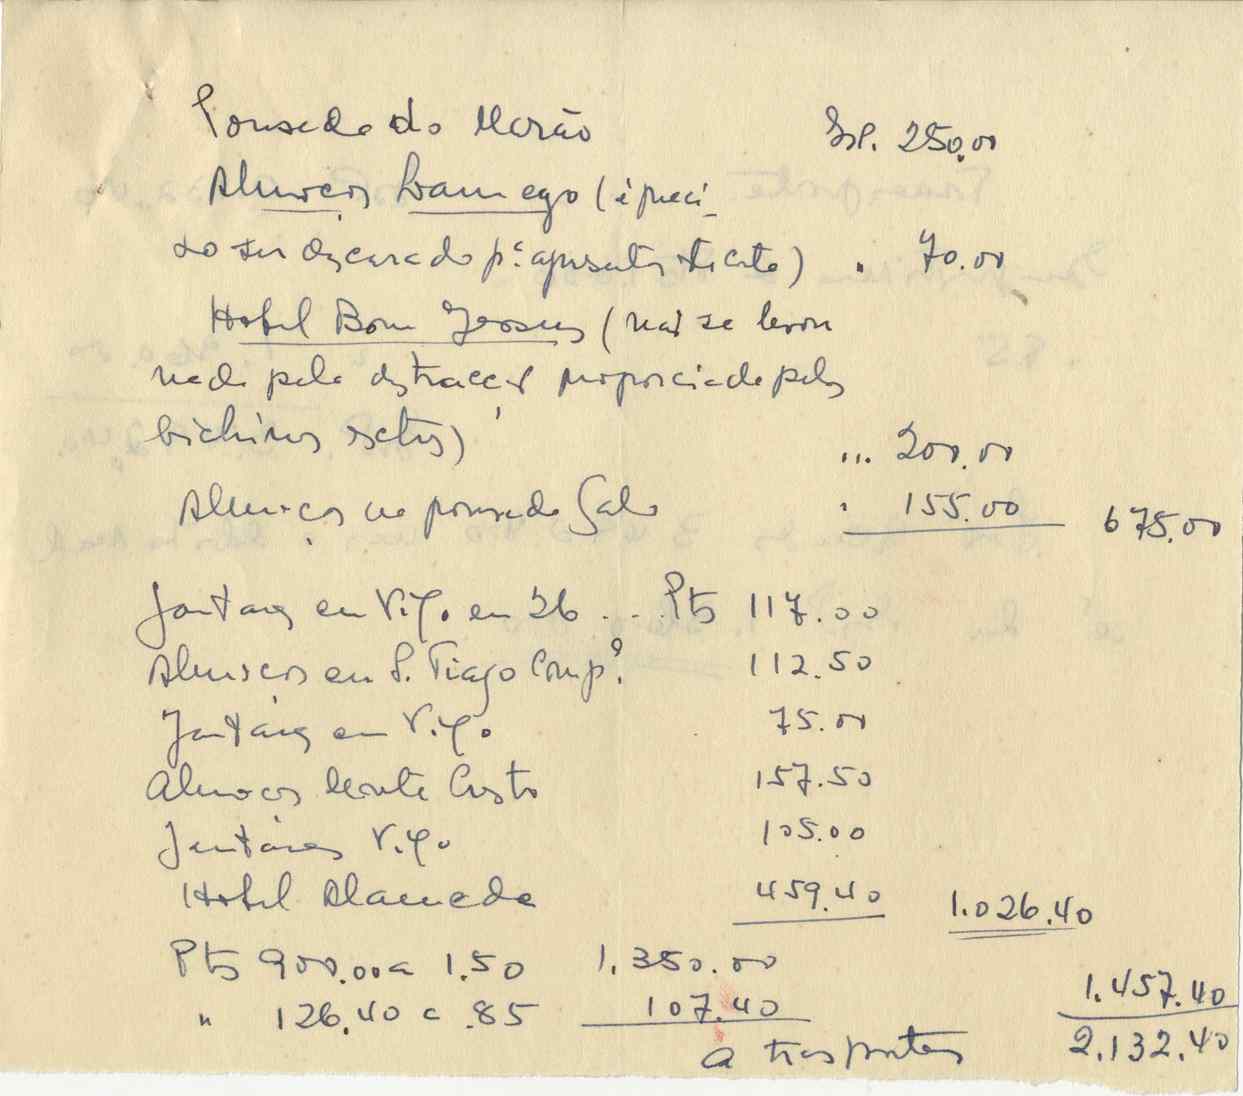 Pousada do Marão Esp. 250.00
Almoços Lamego (é preci-
so ser descarado pª apresentar tal conta) " 70.00
Hotel Bom Jesus (não se levou
nada pela distracção proporciada pelos
bichinos ) "" 200.00
Almoços na pousada Galo " 155.00 675.00
Jantares em Vigo em 26 ... Pts 117.00
Almoços em S. Tiago Comp.ª 112.50
Jantáres em Vigo 75.00
Almoços Monte Castro 157.50
Jantáres Vigo 105.00
Hotel Alameda 459.40 1.026.40
Pts 900.00 a 1.50 1.350.00
" 126.40 a .85 107.40 1.457.40
a trasportar 2.132.40